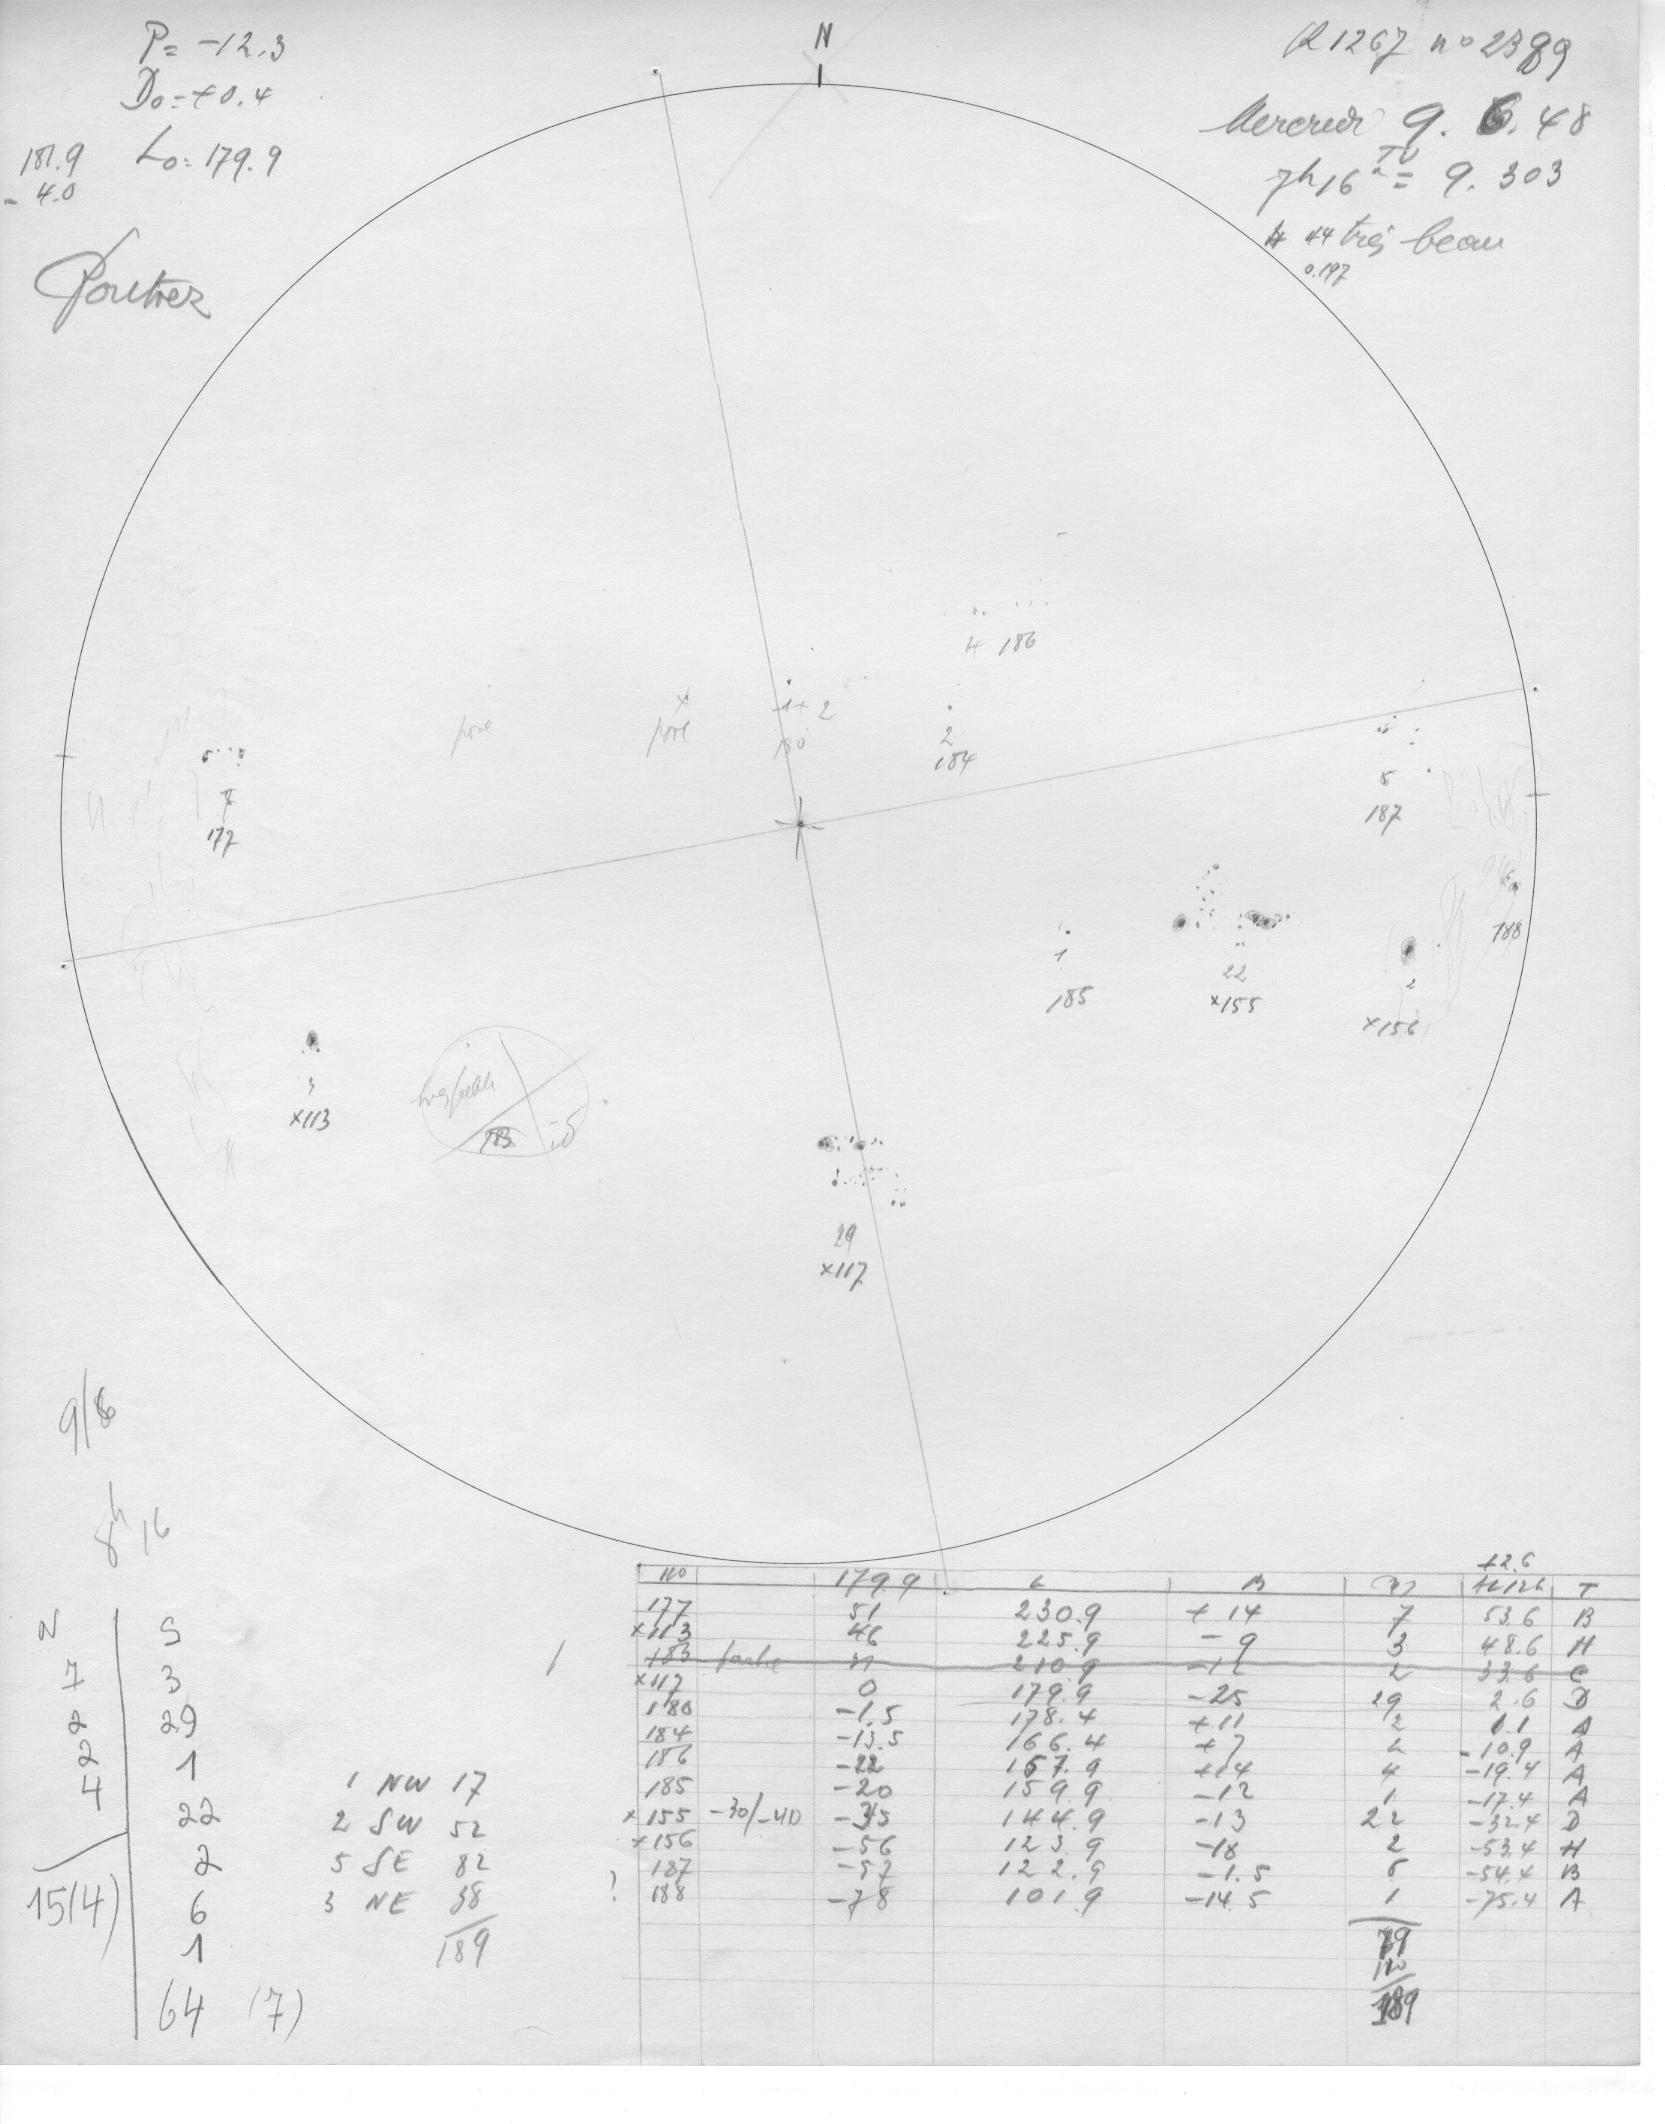 P= -12.3
D₀=+0.4
181.9 L₀= 179.9
- 4.0
N
R1267 no 2389
9. 6. 48
7h16 TU = 9.303
très beau
0.197
4 186
pore
pore
1+2
180
2
184
7
177
6
187
188
1
185
22
×155
2
×156
3
×113
183
29
×117
9/6
8h16
N S
7 3
2 29
2 1
4 22
2
6
1
15(4)
64 (7)
1 NW 17
2 SW 52
5 SE 82
3 NE 38
189
+2.6
no 179.9 L B T
177 51 230.9 +14 7 53.6 B
×113 46 225.9 -9 3 48.6 H
183 31 210.9 -12 2 33.6 C
×117 0 179.9 -25 29 2.6 D
180 -1.5 178.4 +11 2 1.1 A
184 -13.5 166.4 +7 2 -10.9 A
186 -22 157.9 +14 4 -19.4 A
185 -20 159.9 -12 1 -17.4 A
×155 -30/-40 -35 144.9 -13 22 -32.4 D
×156 -56 123.9 -18 2 -53.4 H
187 -57 122.9 -1.5 6 -54.4 B
? 188 -78 101.9 -14.5 1 -75.4 A
79
110
189